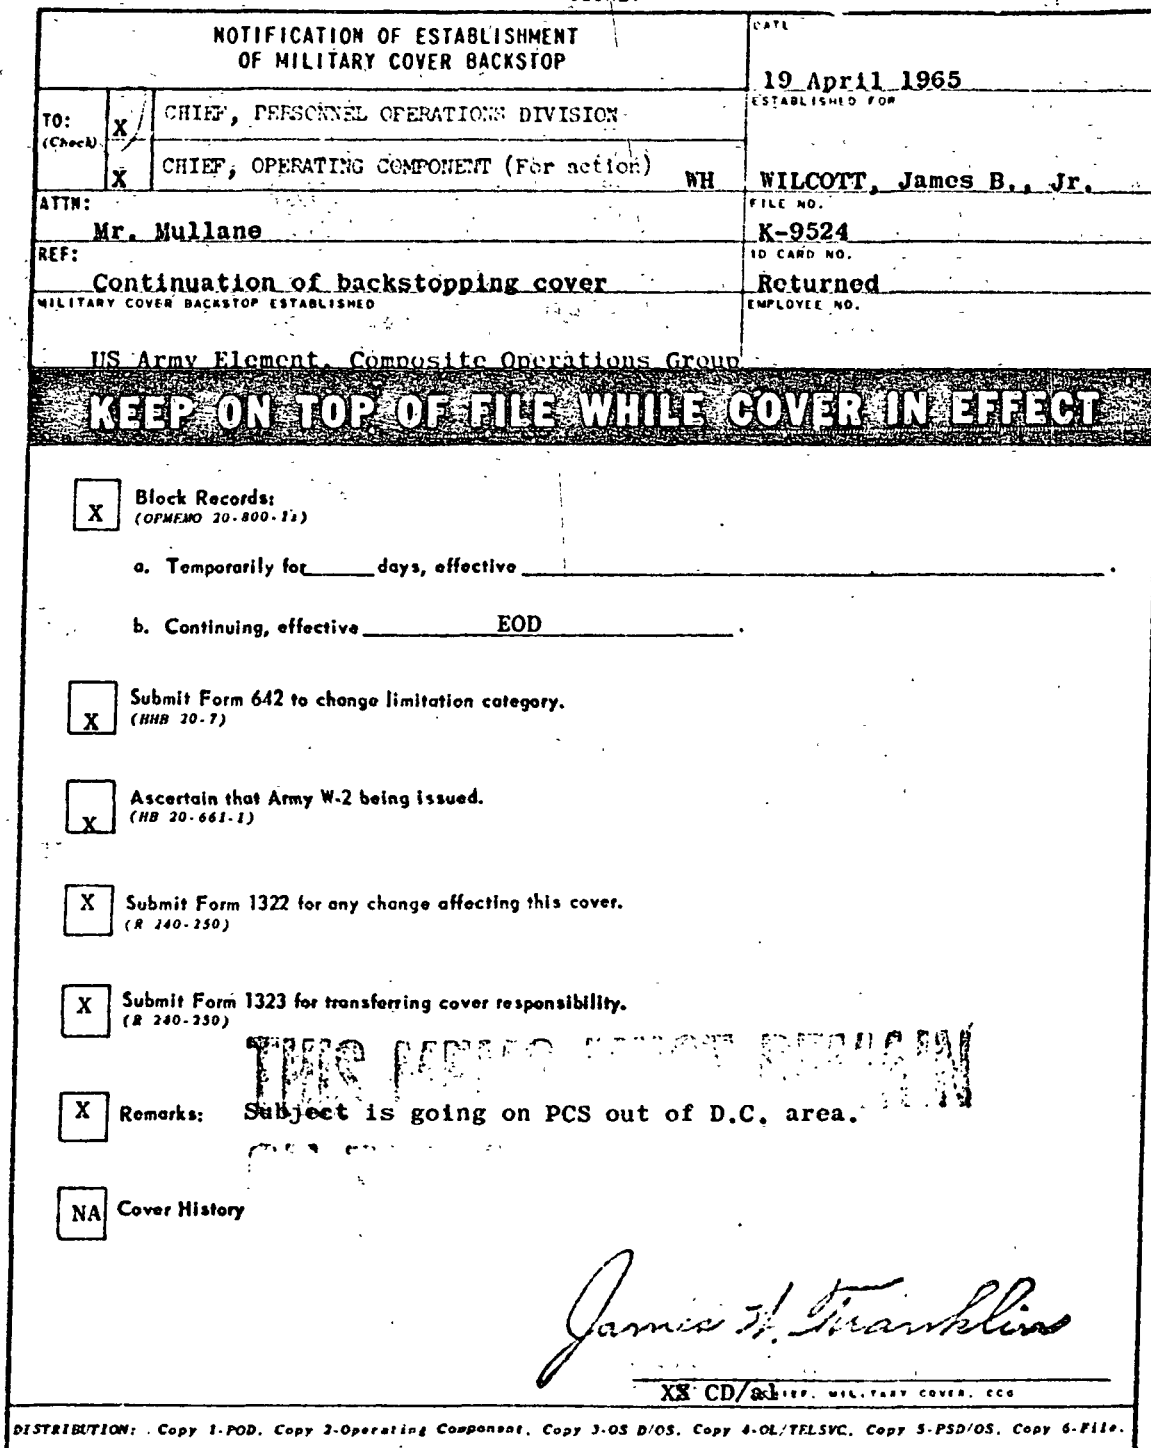 NOTIFICATION OF ESTABLISHMENT
OF MILITARY COVER BACKSTOP
DATE
19 April 1965
TO:
(Check)
X
CHIEF, PERSONNEL OPERATIONS DIVISION
X
CHIEF, OPERATING COMPONENT (For action)
WH
ESTABLISHED FOR
WILCOTT, James B., Jr.
ATTN:
Mr. Mullane
FILE NO.
K-9524
REF:
Continuation of backstopping cover
ID CARD NO.
Returned
MILITARY COVER BACKSTOP ESTABLISHED
US Army Element, Composite Operations Group
EMPLOYEE NO.
KEEP ON TOP OF FILE WHILE COVER IN EFFECT
X Block Records:
(OPMEMO 20-800-11)
a. Temporarily for days, effective .
b. Continuing, effective EOD .
X Submit Form 642 to change limitation category.
(HHB 20-7)
X Ascertain that Army W-2 being issued.
(HB 20-661-1)
X Submit Form 1322 for any change affecting this cover.
(R 240-250)
X Submit Form 1323 for transferring cover responsibility.
(R 240-250)
THIS MEMO MUST REMAIN
X Remarks: Subject is going on PCS out of D.C. area.
NA Cover History
James H. Franklin
XX CD/ad CHIEF, MILITARY COVER, CCG
DISTRIBUTION: Copy 1-POD, Copy 2-Operating Component, Copy 3-OS D/OS, Copy 4-OL/TELSVC, Copy 5-PSD/OS, Copy 6-File.